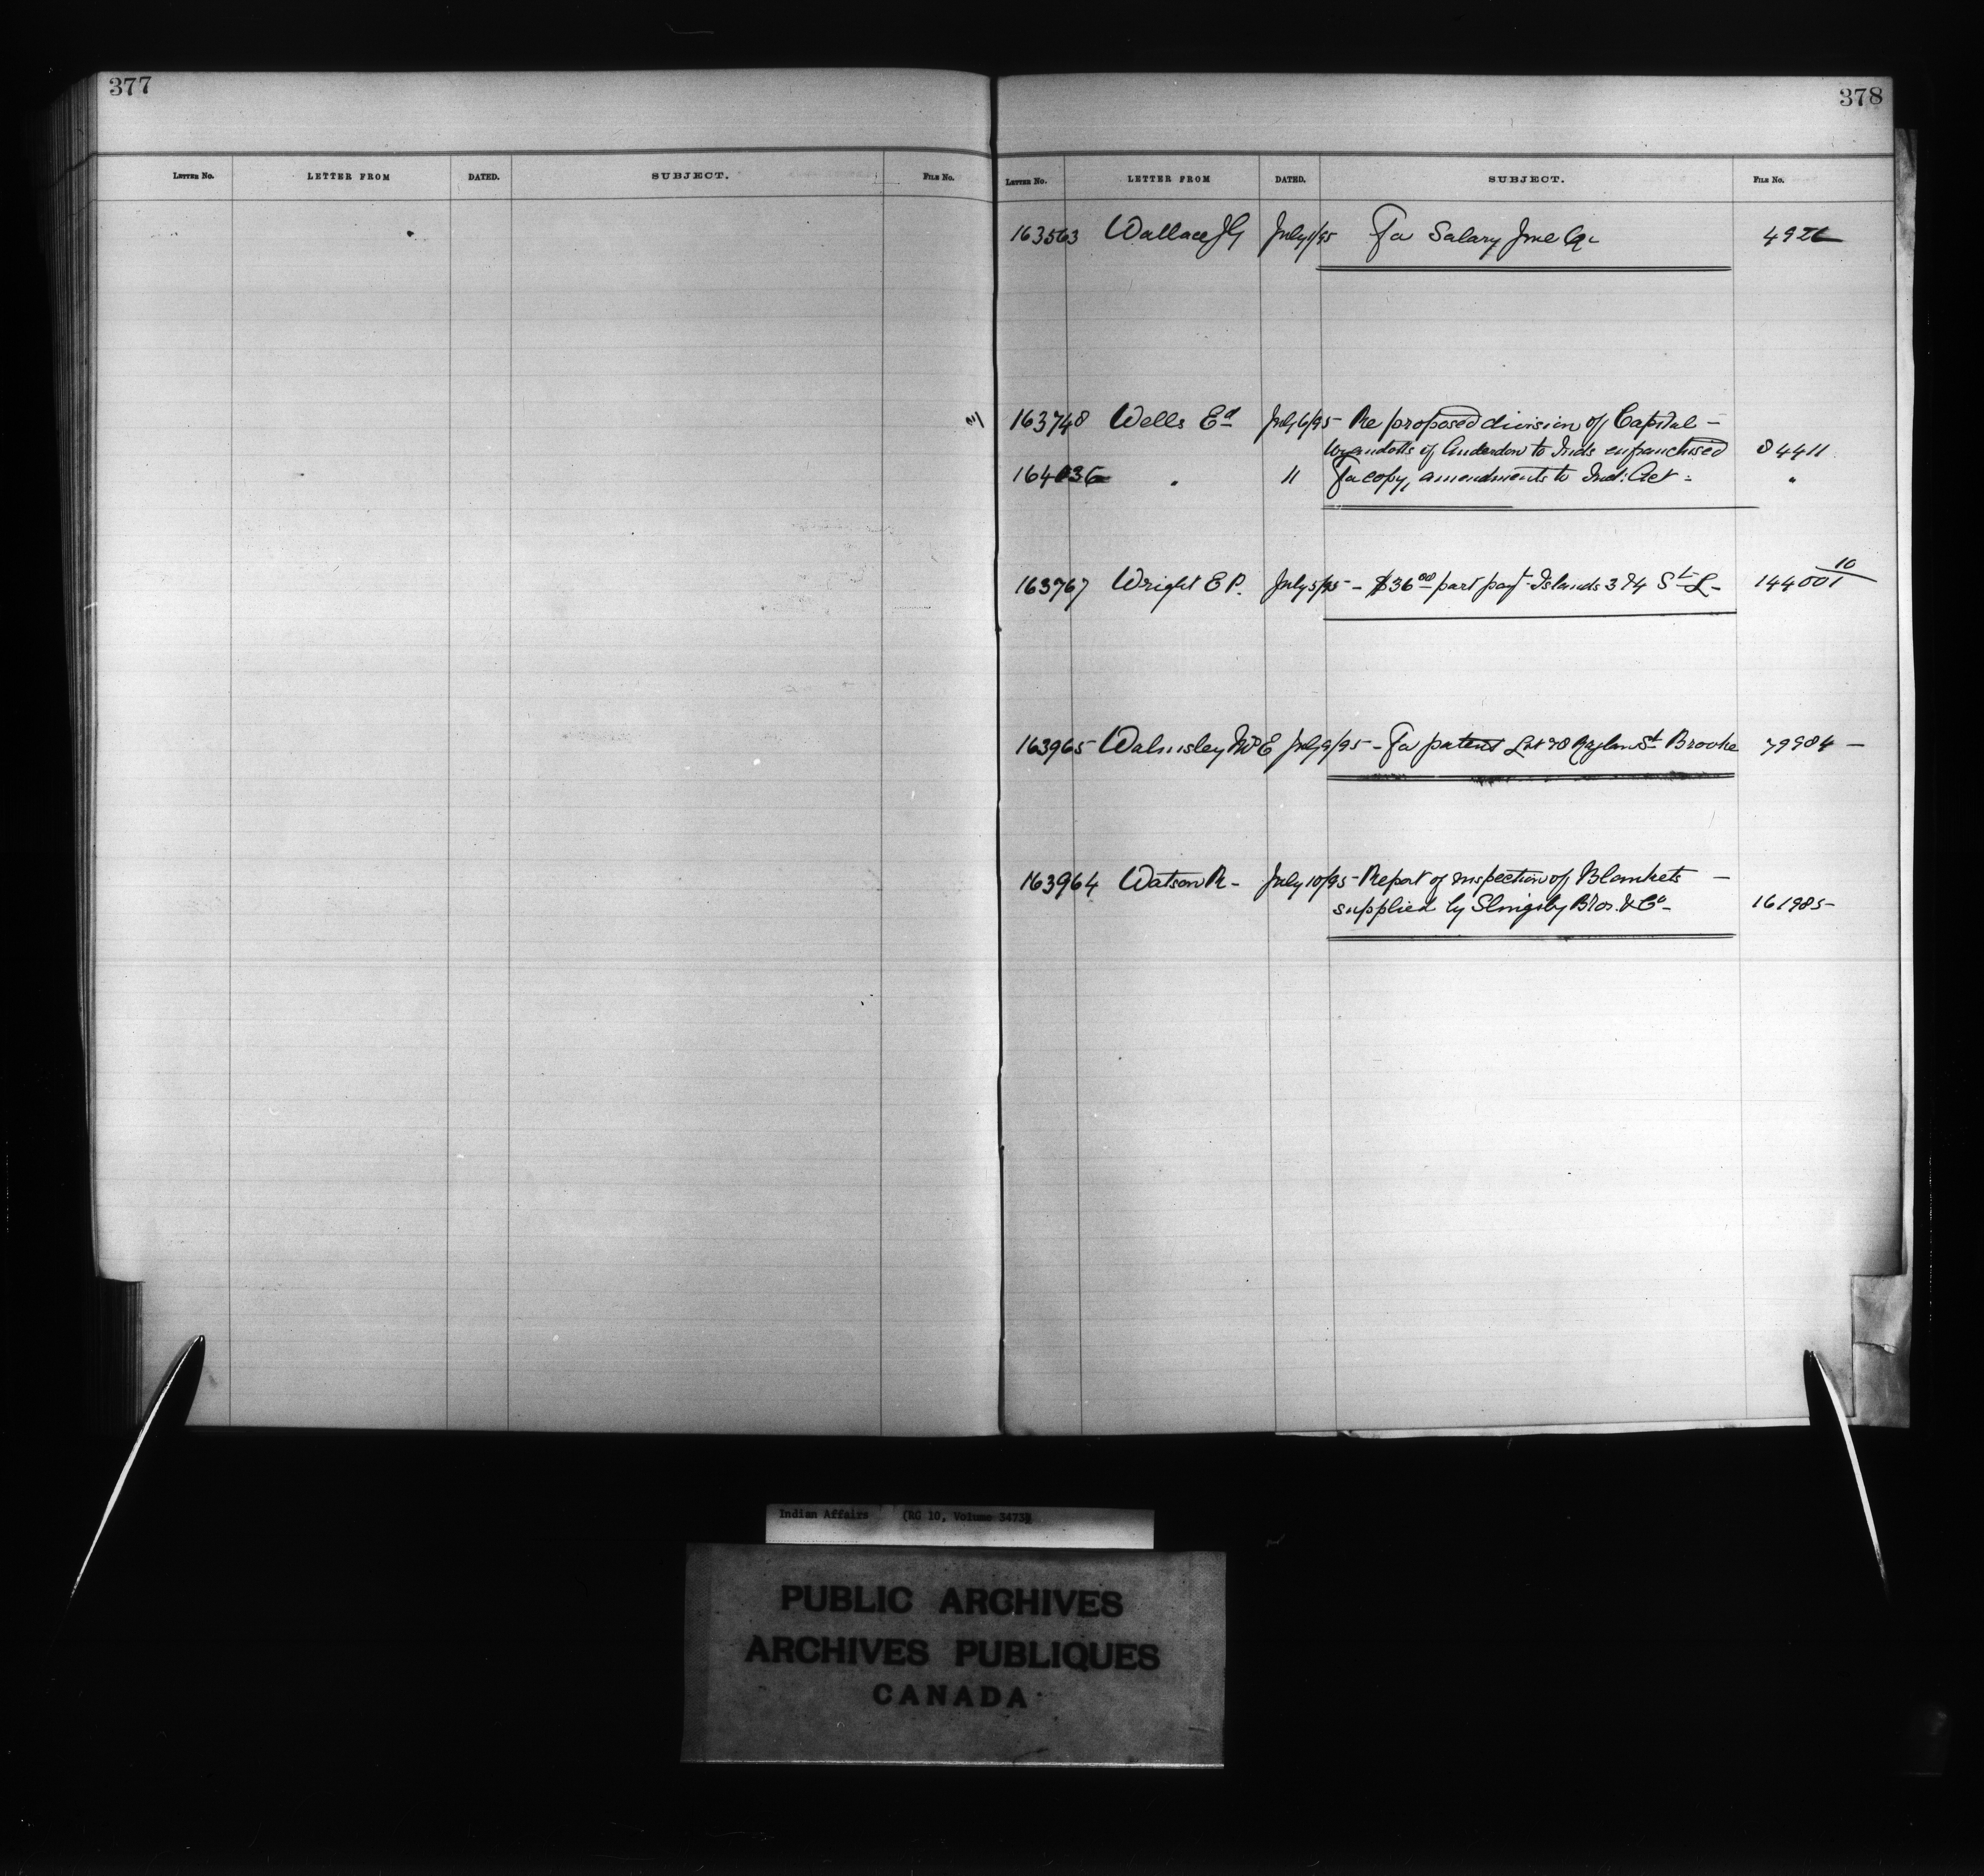 377
LETTER NO. LETTER FROM DATED. SUBJECT. FILE NO.
378
LETTER NO. LETTER FROM DATED. SUBJECT. FILE NO.
163563 Wallace JG July 1/95 For Salary June
163748 Wells Ed July 6/95 - Re proposed division of Capital -
Wyandotts of Anderdon to Inds enfranchised 84411
164036 " 11 For copy, amendments to Ind: Act - "
163767 Wright E P. July 5/95 - $36.00 part payt Islands 3 & 4 St L - 144001 10
163965 Walmsley Mrs E July 9/95 - For patent Lot 78 Raglan St Brooke 79984 -
163964 Watson R - July 10/95 - Report of inspection of Blankets -
supplied by Slingsby Bros. & Co - 161985 -
Indian Affairs (RG 10, Volume 3473)
PUBLIC ARCHIVES
ARCHIVES PUBLIQUES
CANADA